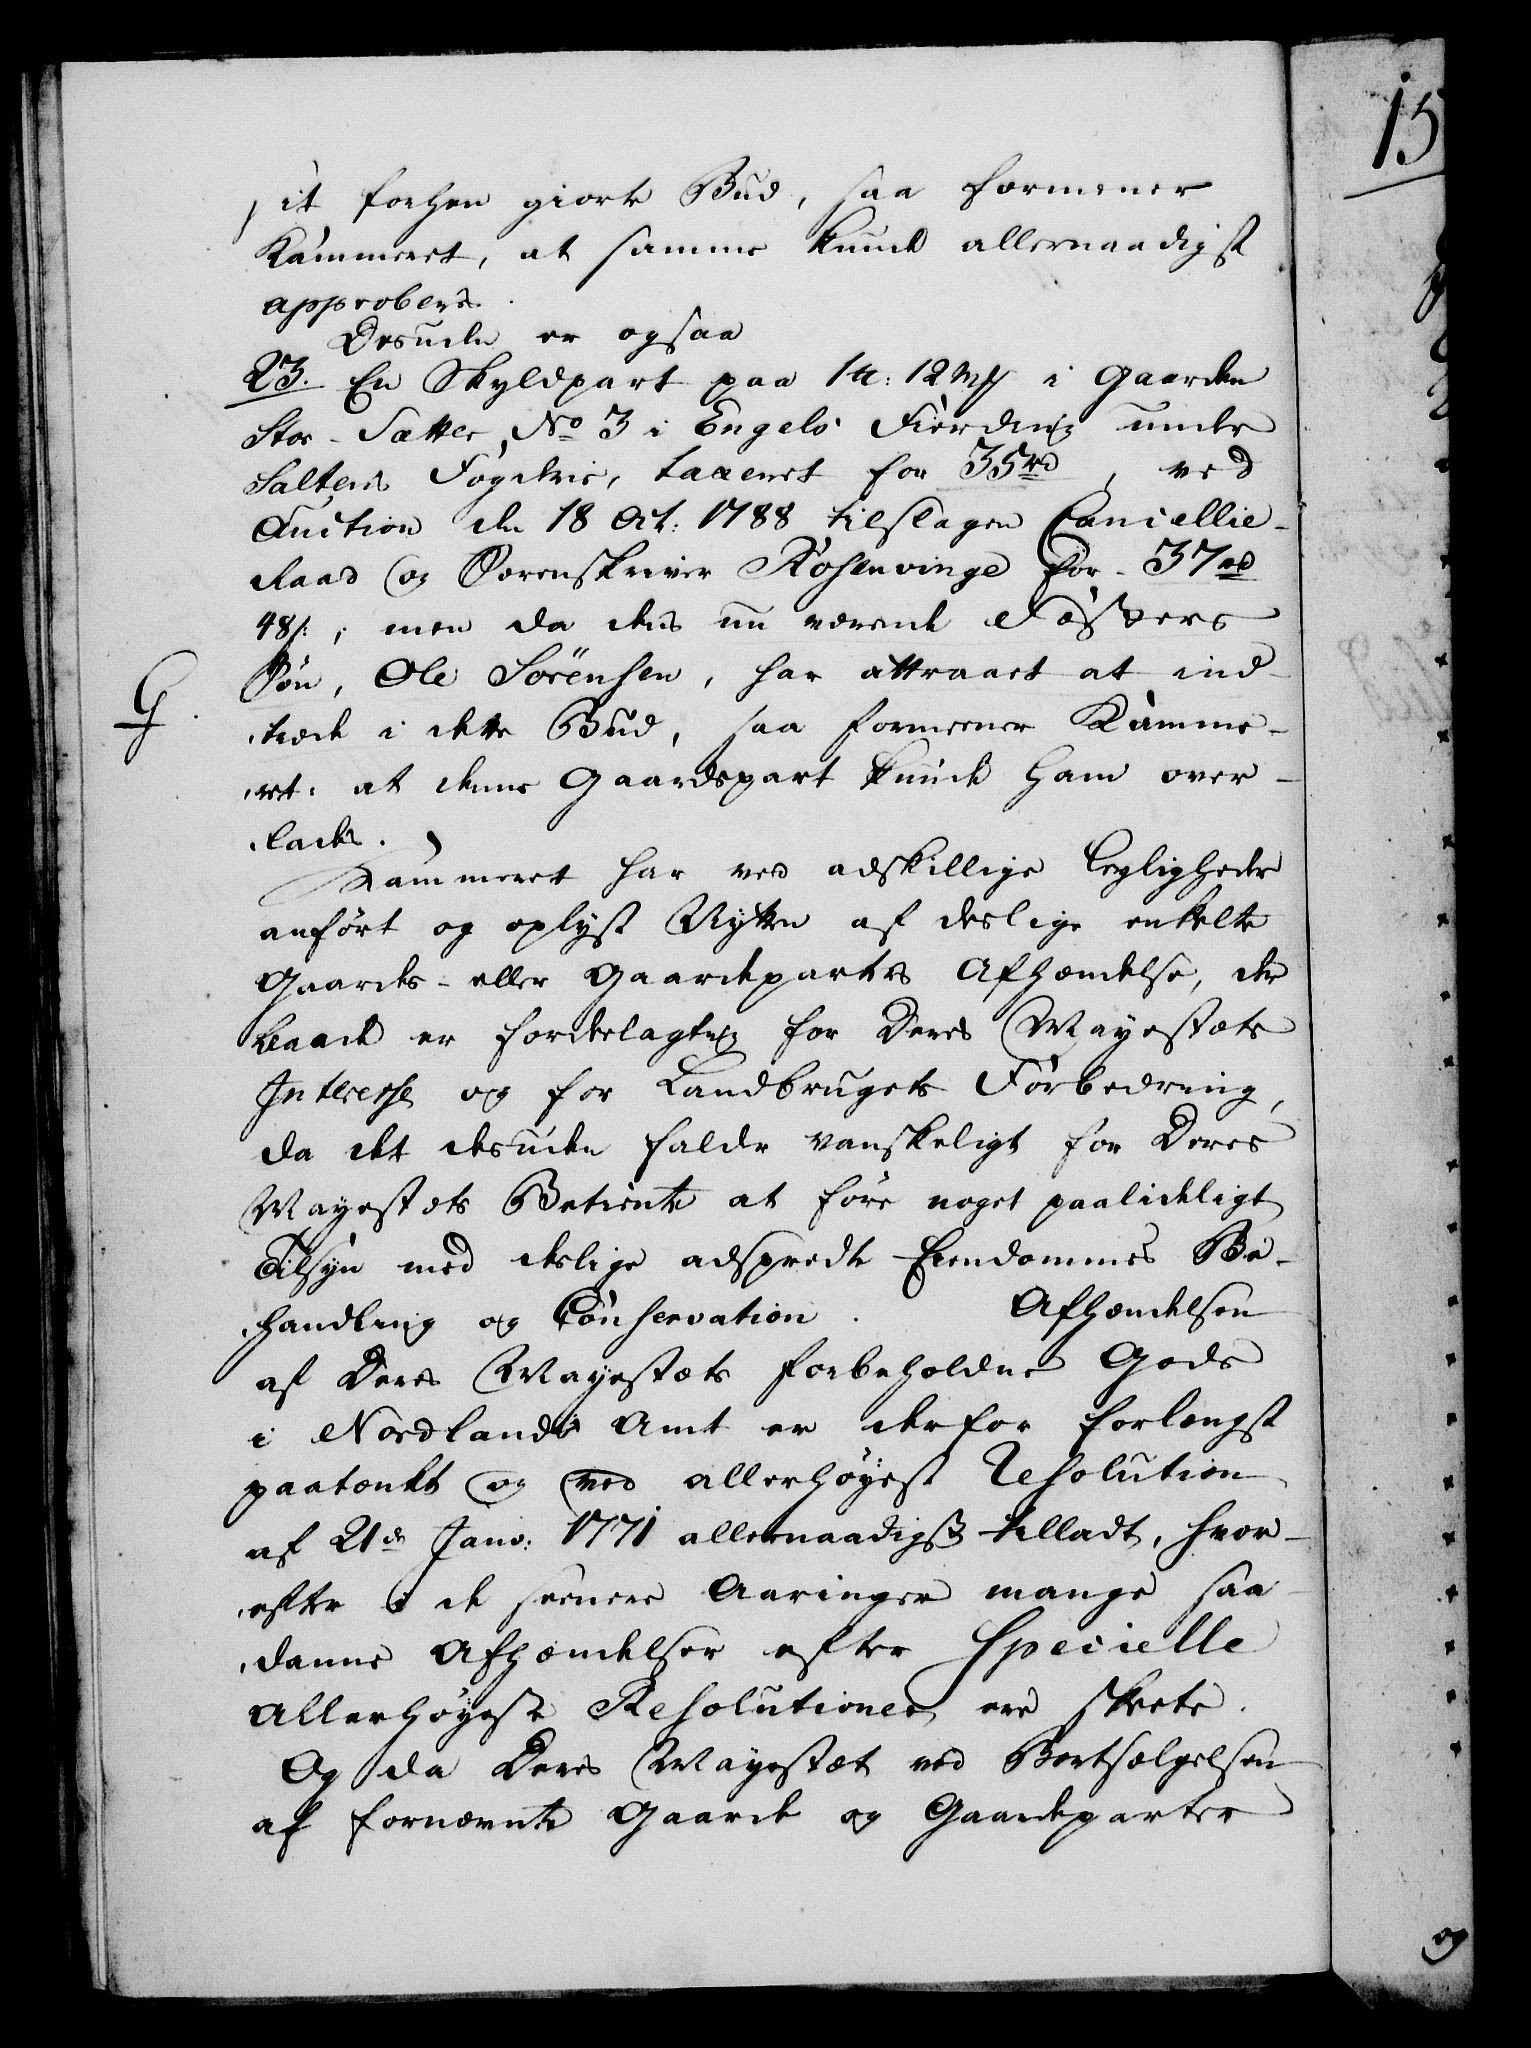 15
sit forhen giorte Bud, saa formener
Kammeret, at samme kunde allernaadigst
approberes.
Desuden er ogsaa
23. En Skyldpart paa 1 12 i Gaarden
Stor-Sætter No 3 i Engelø Fierding under
Saltens Fogderie, taxeret for 35rd, ved
Auction den 18 Oct: 1788 tilslagen Cancellie-
Raad og Sorenskriver Rosenvinge for 37rd
48s; men da den nu værende Fæsters
G. Søn, Ole Sörensen, har attraaet at ind-
træde i dette Bud, saa formeener Kamme-
ret: at denne Gaardspart kunde ham over-
lades.
Kammeret har ved adskillige Leyligheder
anført og oplyst Nytten af deslige enkelte
Gaardes- eller Gaardeparters Afhændelse, der
baade er fordelagtig for Deres Mayestæts
Interesse og for Landbrugets Forbedring,
da det desuden falder vanskeligt for Deres
Mayestæts Betiente at føre noget paalideligt
Tilsyn med deslige adspredte Eiendommes Be-
handling og Conservation. Afhændelsen
af Deres Mayestæts forbeholdne Gods
i Nordlands Amt er derfor forlængst
paatænkt og ved allerhøyest Resolution
af 21de Janv: 1771 allernaadigst tilladt, hvor-
efter i de seenere Aaringer mange saa-
danne Afhændelser efter Specielle
Allerhøyeste Resolutioner ere skeete.
Og da Deres Mayestæt ved Bortsælgelsen
af fornævnte Gaarde og Gaardeparter
og